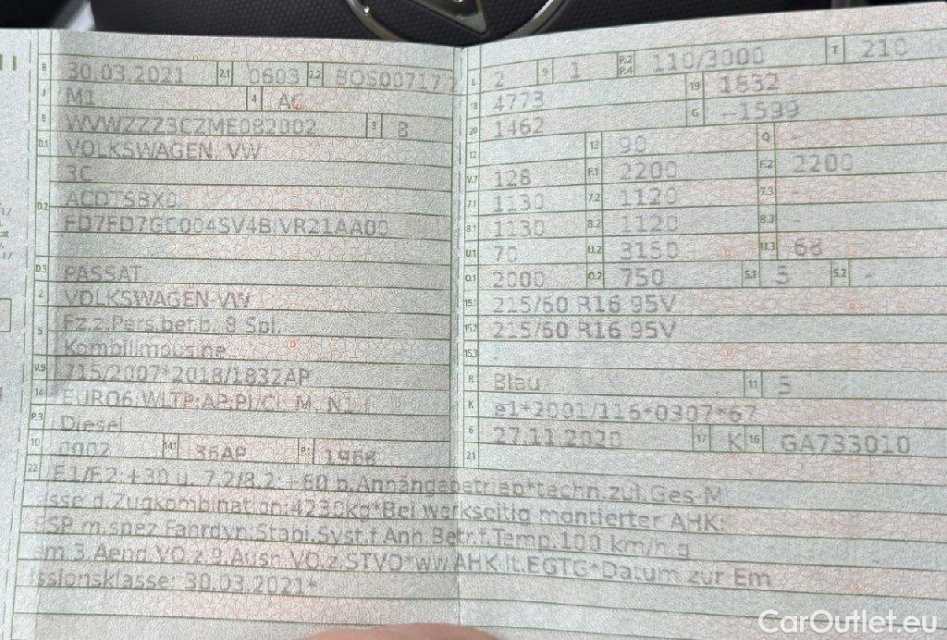 B 30.03.2021 2.1 0603 2.2 BOS00717
J M1 4 AC
E WVWZZZ3CZME082002 3 8
D.1 VOLKSWAGEN, VW
3C
D.2 ACDTSBX0
FD7FD7GC004SV4B VR21AA00
D.3 PASSAT
2 VOLKSWAGEN-VW
5 Fz.z.Pers.bef.b. 8 Spl.
Kombilimousine
V.9 715/2007*2018/1832AP
14 EURO6 WLTP;AP;PI/CI M, N1 I
P.3 Diesel
10 0002 14.1 36AP P.1 1968
L 2 9 1 P.2 P.4 110/3000 T 210
18 4773 19 1832
20 1462 G --1599
12 13 90 Q -
V.7 128 F.1 2200 F.2 2200
7.1 1130 7.2 1120 7.3 -
8.1 1130 8.2 1120 8.3 -
U.1 70 U.2 3150 U.3 68
O.1 2000 O.2 750 S.1 5 S.2 -
15.1 215/60 R16 95V
15.2 215/60 R16 95V
15.3
R Blau 11 5
K e1*2001/116*0307*67
6 27.11.2020 17 K 16 GA733010
21
22 /F.1/F.2:+30 u. 7.2/8.2:+60 b.Anhängebetrieb*techn.zul.Ges-M
asse d.Zugkombination:4230kg*Bei werkseitig montierter AHK:
ESP m.spez.Fahrdyn.Stabi.Syst.f.Anh.Betr.f.Temp.100 km/h g
em.3.Aend.VO.z.9.Ausn.VO.z.STVO*ww.AHK lt.EGTG*Datum zur Em
issionsklasse: 30.03.2021*
CarOutlet.eu